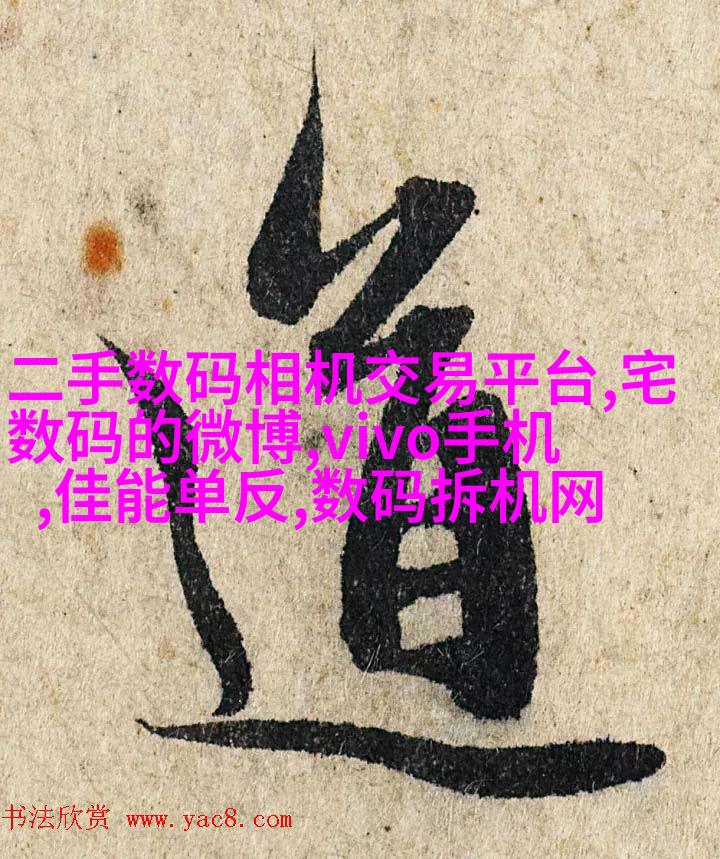 道
二手数码相机交易平台,宅
数码的微博,vivo手机
,佳能单反,数码拆机网
书法欣赏 www.yac8.com